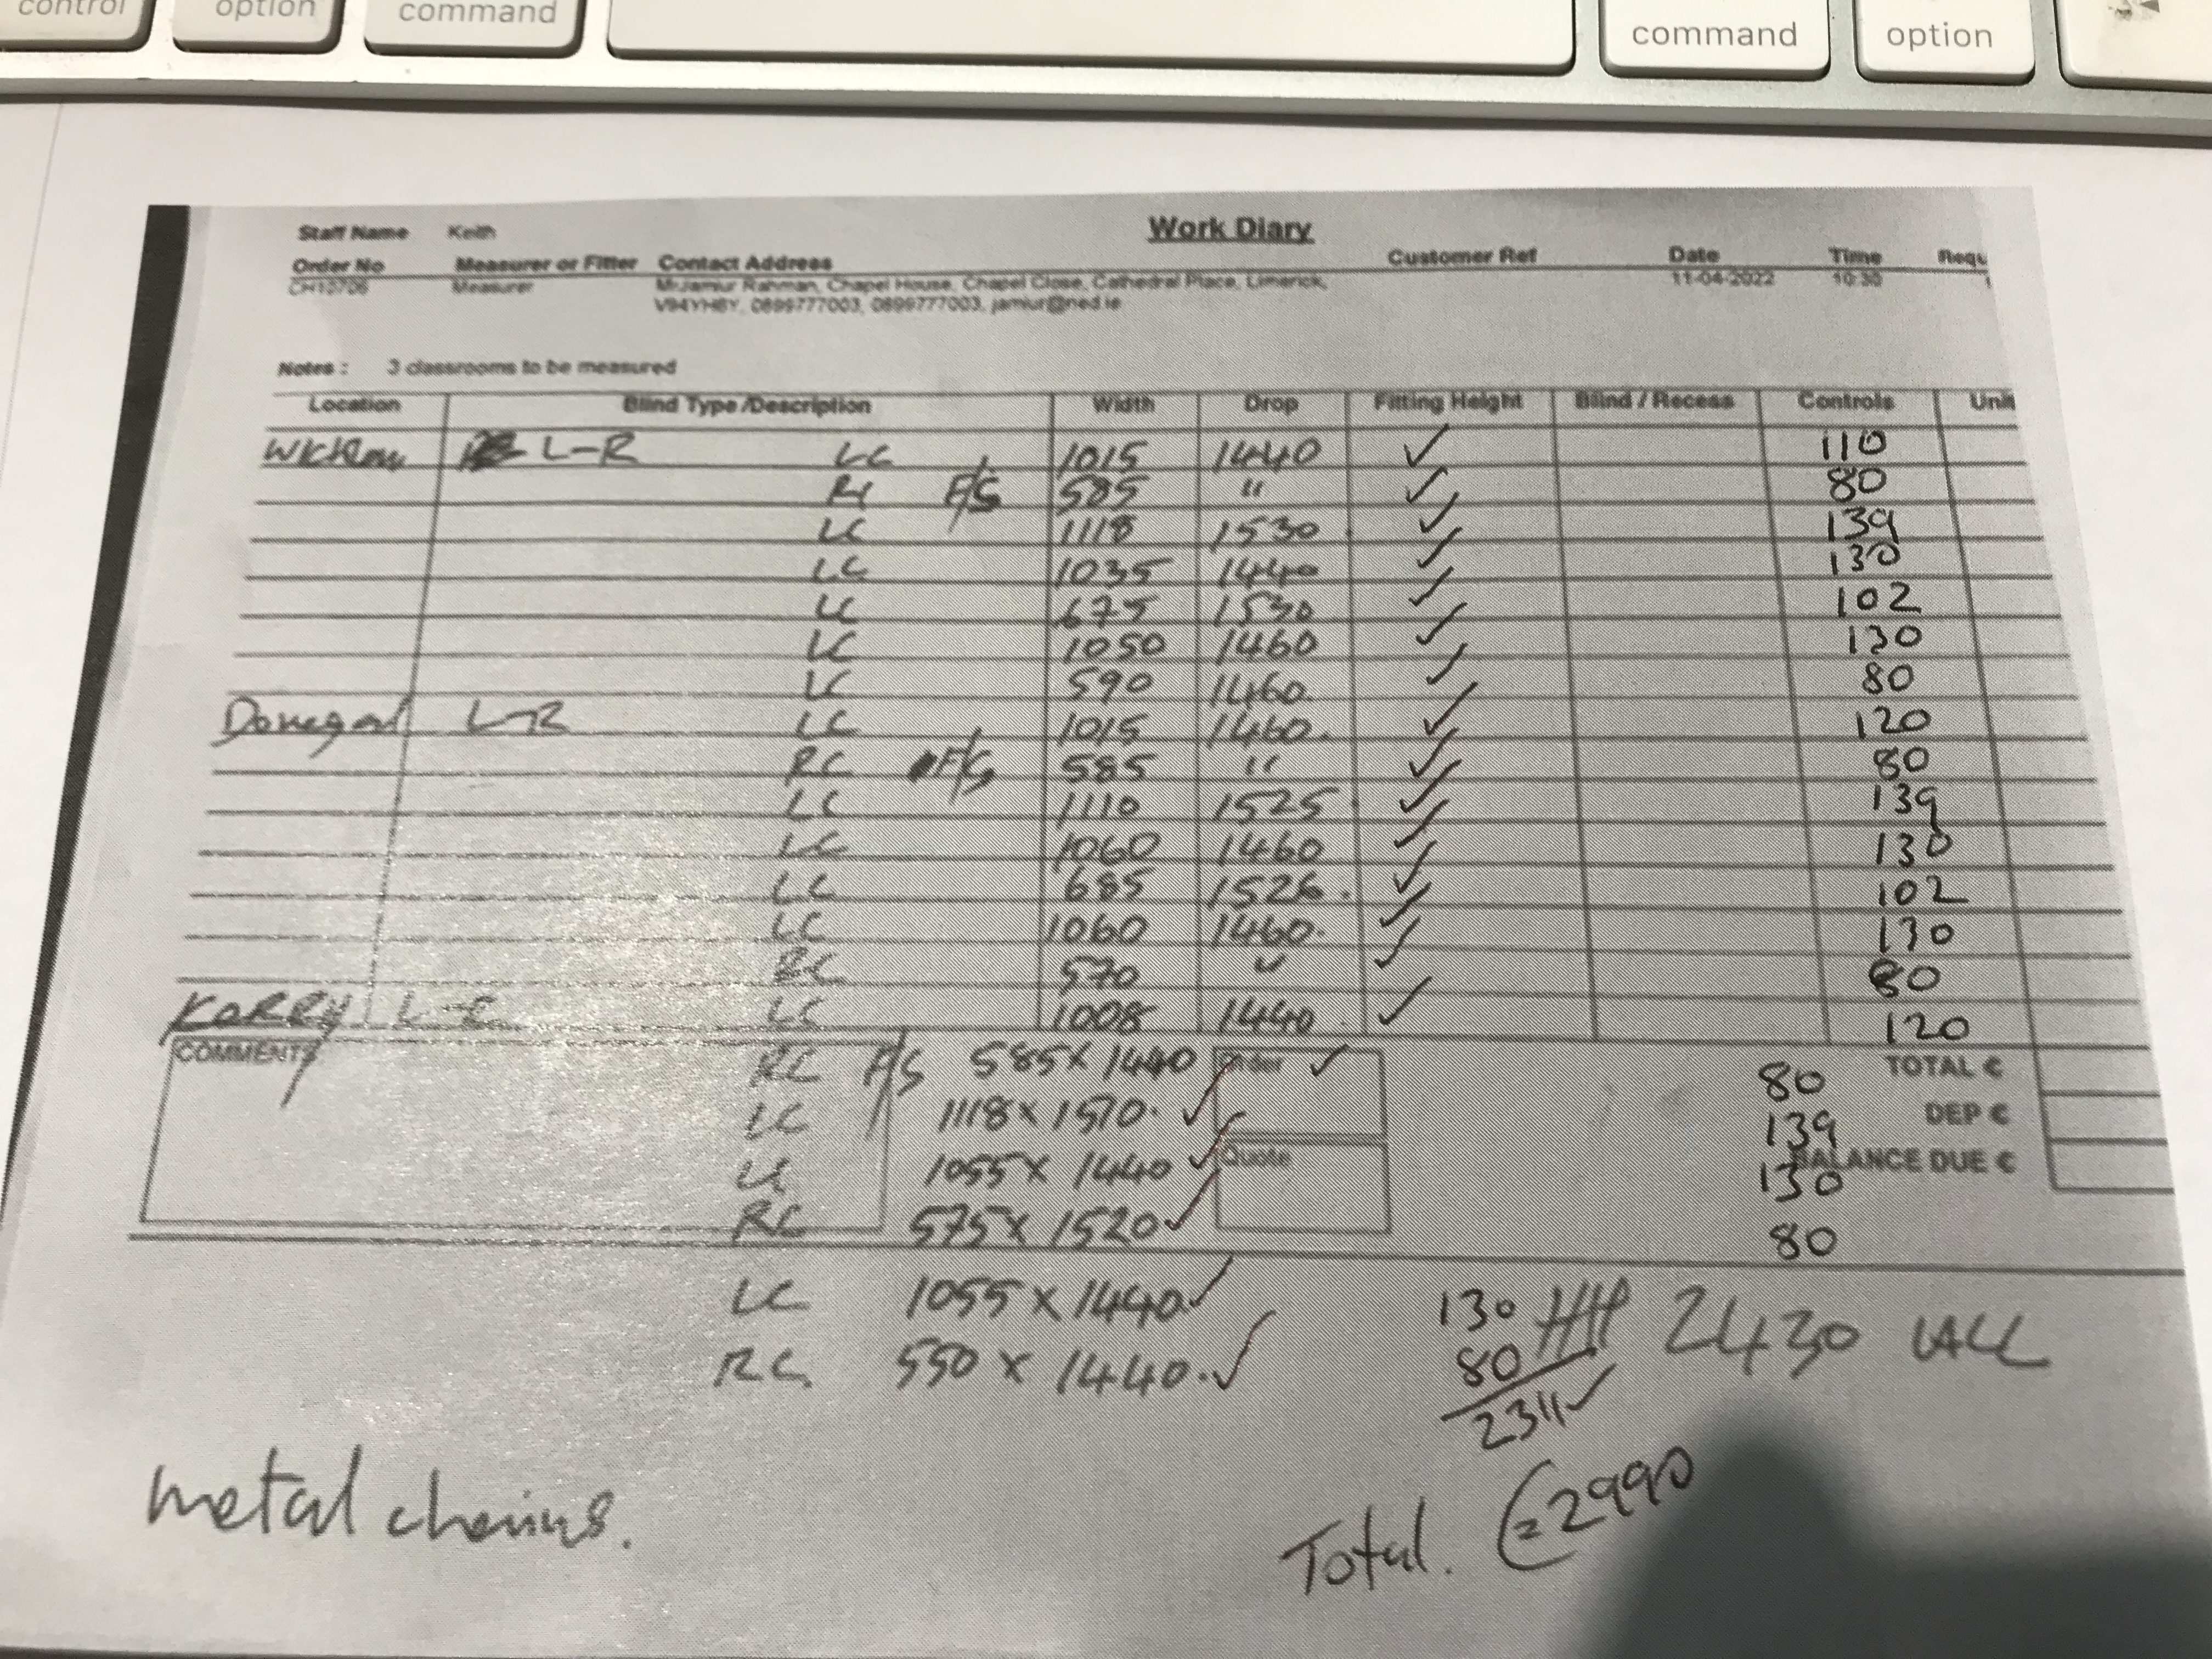 control option command command option
Work Diary
Staff Name Keith
Order No Measurer or Fitter Contact Address Customer Ref Date Time Requ
CH10706 Measurer Mr.Jamiur Rahman, Chapel House, Chapel Close, Cathedral Place, Limerick, 11-04-2022 10:30
V94YH6Y, 0899777003, 0899777003, jamiur@ned.ie
Notes : 3 classrooms to be measured
Location Blind Type /Description Width Drop Fitting Height Blind / Recess Controls Unit
Wicklow L-R LC 1015 1440 ✓ 110
RC F/S 585 " ✓ 80
LC 1118 1530 ✓ 139
LC 1035 1440 ✓ 130
LC 675 1530 ✓ 102
LC 1050 1460 ✓ 130
LC 590 1460 ✓ 80
Donegal L-R LC 1015 1460. ✓ 120
RC F/S 585 " ✓ 80
LC 1110 1525. ✓ 139
LC 1060 1460 ✓ 130
LC 685 1526. ✓ 102
LC 1060 1460. ✓ 130
RC 570 " ✓ 80
KERRY L-R LC 1008 1440. ✓ 120
COMMENTS RC F/S 585 x 1440 Order ✓ 80 TOTAL €
LC 1118 x 1570. ✓ 139 DEP €
LC 1055 x 1440 ✓ Quote 130 BALANCE DUE €
RC 575 x 1520 ✓ 80
LC 1055 x 1440. ✓ 130 2430
RC 550 x 1440. ✓ 80
2311 ✓
metal chains.
Total. €2990